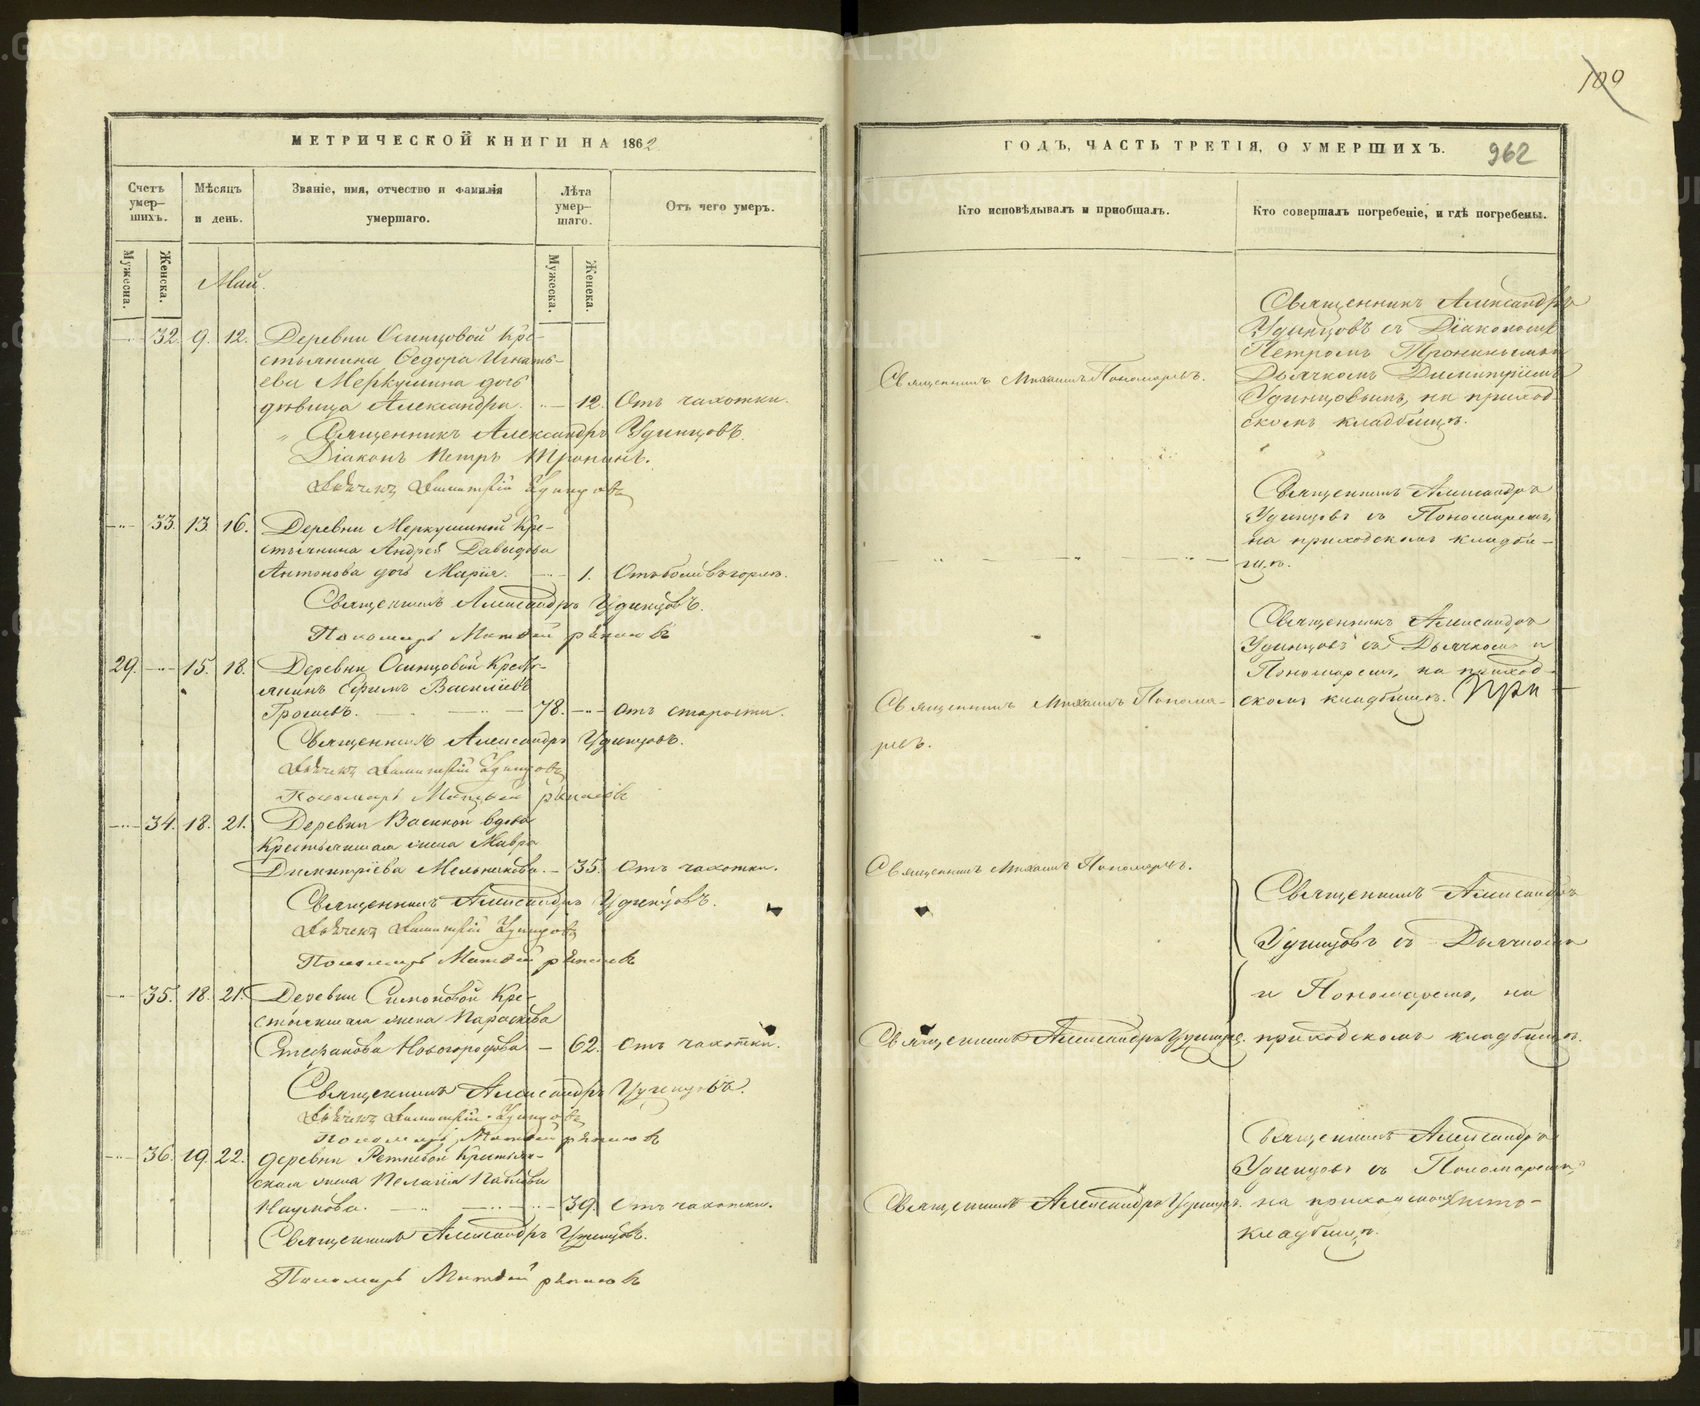 МЕТРИЧЕСКОЙ КНИГИ НА 1862
Счетъ умер- шихъ.
Мѣсяцъ и день.
Званіе, имя, отчество и фамилія умершаго.
Лѣта умер- шаго.
Отъ чего умеръ.
Мужеска.
Женска.
Мужеска.
Женска.
Май.
32. 9. 12. Деревни Осинцовой Кре-
стьянина Ѳедора Игнать-
ева Меркушина дочь
дѣвица Александра. 12. Отъ чахотки.
Священникъ Александръ Удинцовъ.
Діаконъ Петръ Тронинъ.
Дьячекъ Димитрій Удинцовъ
33. 13. 16. Деревни Меркушиной Кре-
стьянина Андрея Давыдова
Антонова дочь Марія. 1. Отъ боли въ горлѣ.
Священникъ Александръ Удинцовъ.
Пономарь Матвей
29. 15. 18. Деревни Осинцовой Кресть-
янинъ Ефимъ Василіевъ
78. отъ старости.
Священникъ Александръ Удинцовъ.
Дьячекъ Димитрій Удинцовъ
Пономарь Матвей
34. 18. 21. Деревни вдова
Крестьянская жена Мавра
Димитріева Мельникова. 35. Отъ чахотки.
Священникъ Александръ Удинцовъ.
Дьячекъ Димитрій Удинцовъ
Пономарь Матвей
35. 18. 21. Деревни Симоновой Кре-
стьянская жена Параскева
Стефанова Новогородова 62. Отъ чахотки.
Священникъ Александръ Удинцовъ.
Дьячекъ Димитрій Удинцовъ
Пономарь Матвей
36. 19. 22. деревни Ретневой Крестьян-
ская жена Пелагія Павлова
Наумова. 39. Отъ чахотки.
Священникъ Александръ Удинцовъ.
Пономарь Матвей
100
ГОДЪ, ЧАСТЬ ТРЕТІЯ, О УМЕРШИХЪ.
962
Кто исповѣдывалъ и пріобщалъ.
Кто совершалъ погребеніе, и гдѣ погребены.
Священникъ Александръ
Удинцовъ съ Діакономъ
Петромъ Тронинымъ и
Священникъ Михаилъ Пономаревъ.
Дьячкомъ Димитріемъ
Удинцовымъ, на приход-
скомъ кладбищѣ.
Священникъ Александръ
Удинцовъ съ Пономаремъ,
на приходскомъ кладби-
щѣ.
Священникъ Александръ
Удинцовъ съ Дьячкомъ и
Пономаремъ, на приход-
Священникъ Михаилъ Понома-
скомъ кладбищѣ. При-
ревъ.
Священникъ Михаилъ Пономаревъ.
Священникъ Александръ
Удинцовъ съ Дьячкомъ
и Пономаремъ, на
Священникъ Александръ Удинцовъ.
приходскомъ кладбищѣ.
Священникъ Александръ
Удинцовъ съ Пономаремъ,
Священникъ Александръ Удинцовъ.
на приходскомъ
кладбищѣ.
METRIKI.GASO-URAL.RU